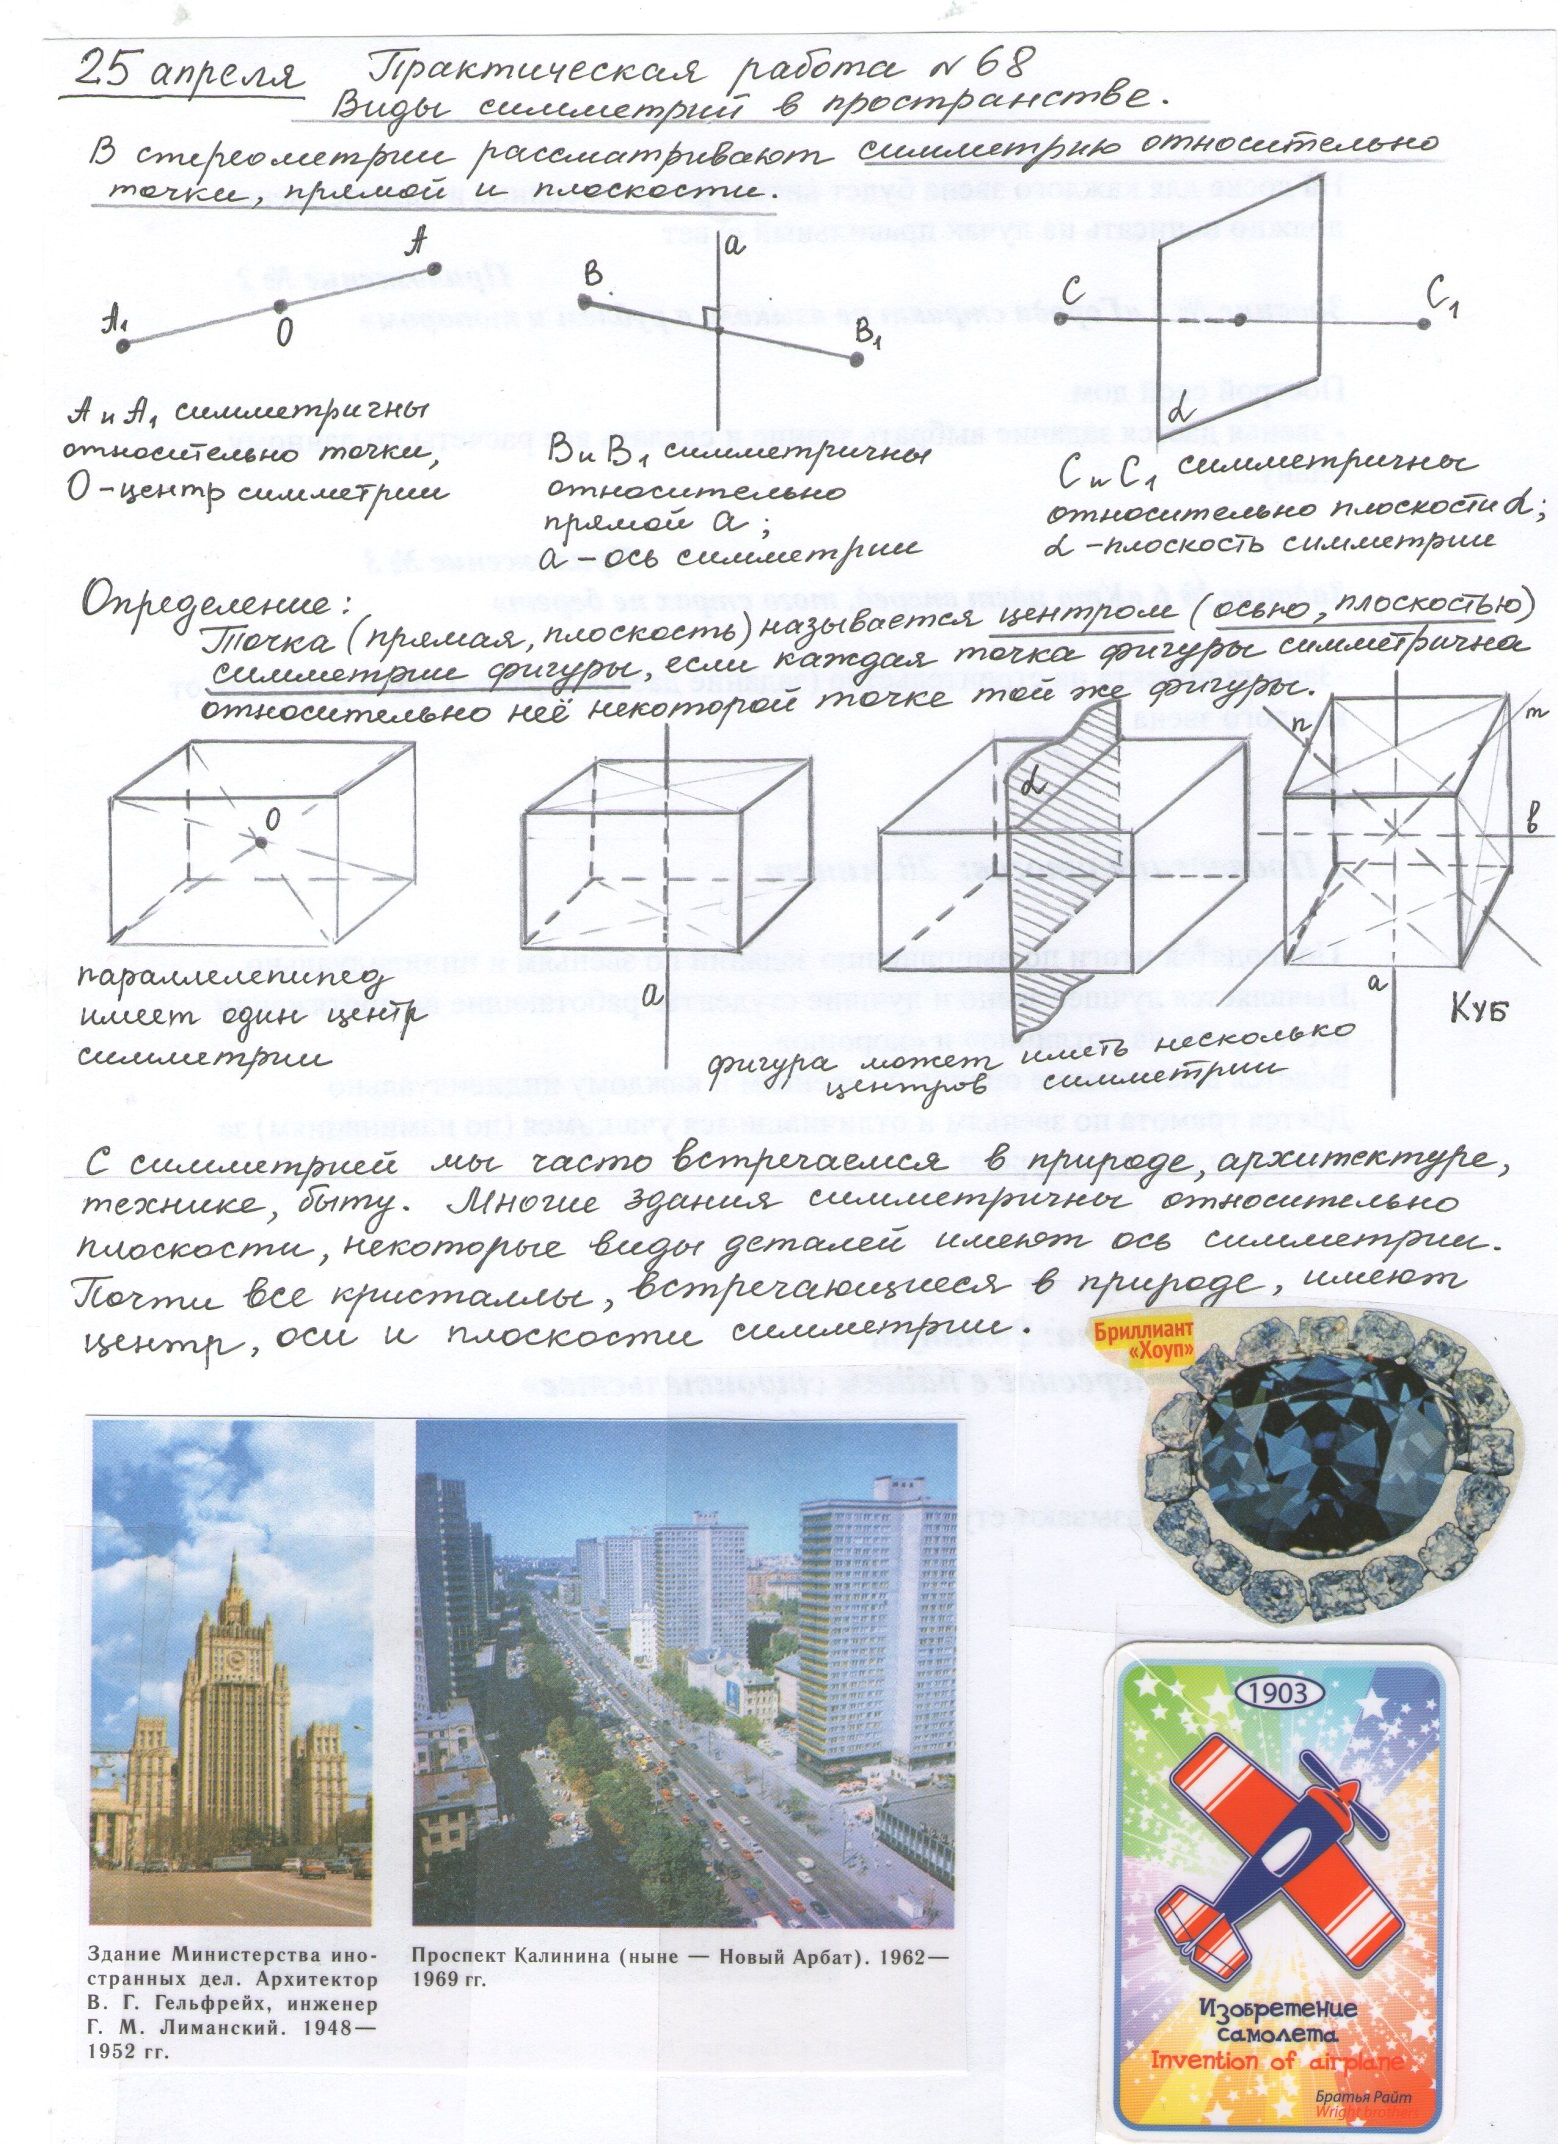 25 апреля Практическая работа №68
Виды симметрий в пространстве.
В стереометрии рассматривают симметрию относительно
точки, прямой и плоскости.
A
A₁
O
a
B
B₁
C
C₁
α
A и A₁ симметричны
относительно точки,
O – центр симметрии
B и B₁ симметричны
относительно
прямой a;
a – ось симметрии
C и C₁ симметричны
относительно плоскости α;
α – плоскость симметрии
Определение:
Точка (прямая, плоскость) называется центром (осью, плоскостью)
симметрии фигуры, если каждая точка фигуры симметрична
относительно неё некоторой точке той же фигуры.
O
a
α
n
m
в
a
Куб
параллелепипед
имеет один центр
симметрии
фигура может иметь несколько
центров симметрии
С симметрией мы часто встречаемся в природе, архитектуре,
технике, быту. Многие здания симметричны относительно
плоскости, некоторые виды деталей имеют ось симметрии.
Почти все кристаллы, встречающиеся в природе, имеют
центр, оси и плоскости симметрии.
Бриллиант
«Хоуп»
Здание Министерства ино-
странных дел. Архитектор
В. Г. Гельфрейх, инженер
Г. М. Лиманский. 1948—
1952 гг.
Проспект Калинина (ныне — Новый Арбат). 1962—
1969 гг.
1903
Изобретение
самолета
Invention of airplane
Братья Райт
Wright brothers